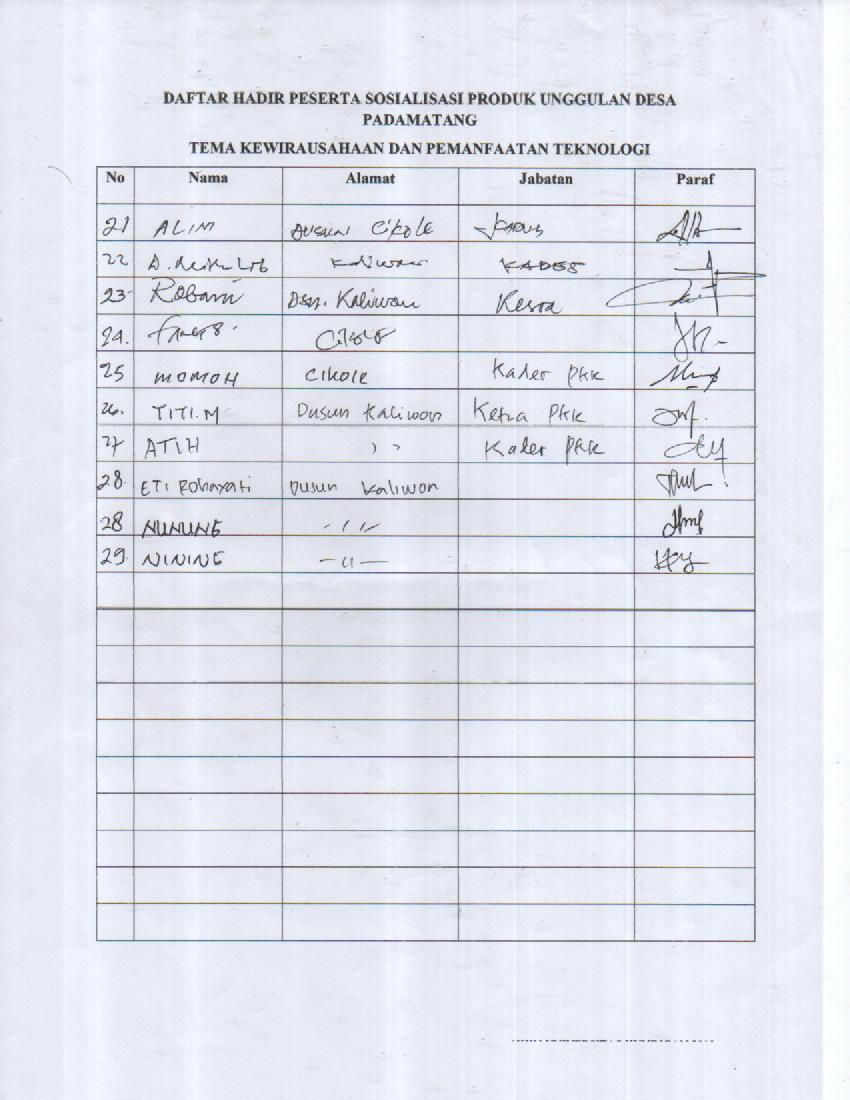 DAFTAR HADIR PESERTA SOSIALISASI PRODUK UNGGULAN DESA
PADAMATANG
TEMA KEWIRAUSAHAAN DAN PEMANFAATAN TEKNOLOGI
No Nama Alamat Jabatan Paraf
21 ALIM Dusun Cikole
22 Kaliwon KADES
23 Robani Dsn. Kaliwon Kesra
24. Cikole
25 MOMOH CIKOLE Kader PKK
26. TITI.M Dusun Kaliwon Ketua PKK
27 ATIH , , Kader PKK
28. ETI Rohayati Dusun Kaliwon
28 NUNUNG - / / -
29. NINING - u -